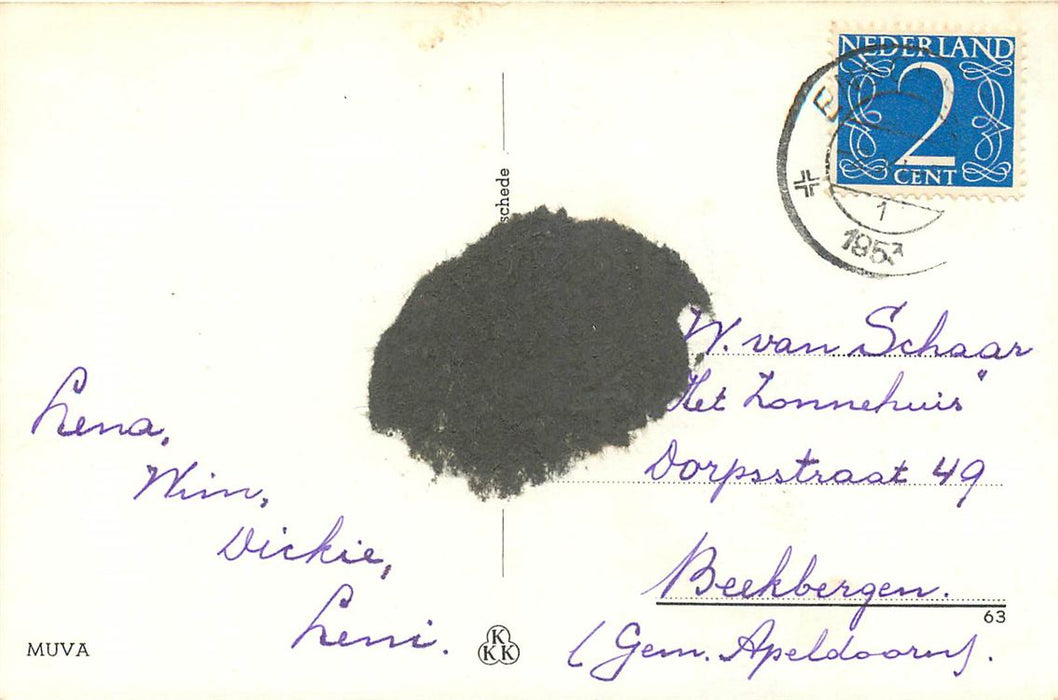 NEDERLAND
2
CENT
1
1953
schede
W. van Schaar
"Het Zonnehuis"
Dorpsstraat 49
Beekbergen.
(Gem. Apeldoorn).
Lena,
Wim,
Dickie,
Leni.
MUVA
K
KK
63